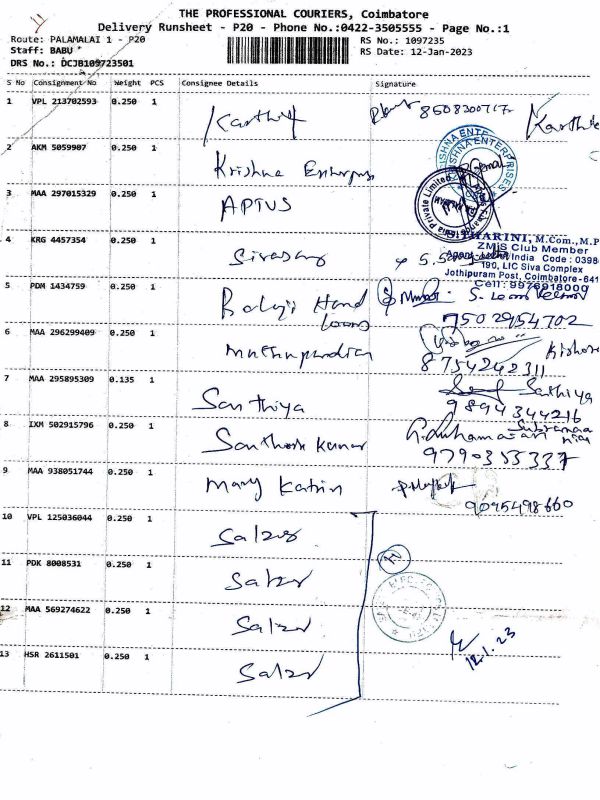 THE PROFESSIONAL COURIERS, Coimbatore
Delivery Runsheet - P20 - Phone No.:0422-3505555 - Page No.:1
Route: PALAMALAI 1 - P20
RS No.: 1097235
Staff: BABU
RS Date: 12-Jan-2023
DRS No.: DCJB109723501
S No Consignment No Weight PCS Consignee Details Signature
1 VPL 213702593 0.250 1 Karthik 8508300717 Karthik
2 AKM 5059907 0.250 1 Krishna Enterprises
KRISHNA ENTERPRISES
3 MAA 297015329 0.250 1 APTUS
India Private Limited
4 KRG 4457354 0.250 1 Sivasany
HARINI, M.Com., M.P
ZMIS Club Member
India Code : 0398
190, LIC Siva Complex
Jothipuram Post, Coimbatore-641
Cell: 9976918000
5 PDM 1434759 0.250 1 Balaji Hand Looms
7502954702
6 MAA 296299409 0.250 1 muthupandian Kishore
8754242311
7 MAA 295895309 0.135 1 Santhiya Sathiya
9894344216
8 IXM 502915796 0.250 1 Santhosh Kumar
9790355337
9 MAA 938051744 0.250 1 Mary Katrin
9095498660
10 VPL 125036044 0.250 1 Salzer
11 PDK 8008531 0.250 1 Salzer
12 MAA 569274622 0.250 1 Salzer
12.1.23
13 HSR 2611501 0.250 1 Salzer